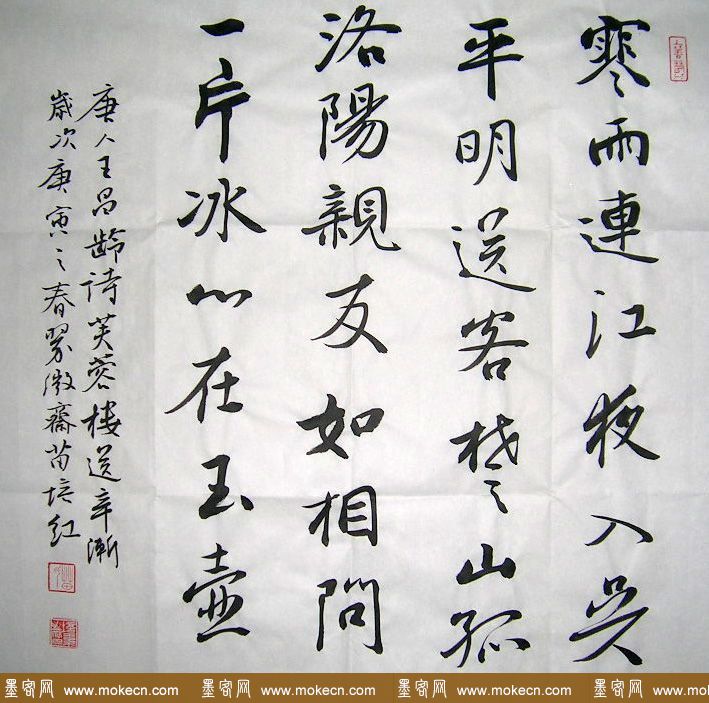 寒雨連江夜入吳
平明送客楚山孤
洛陽親友如相問
一片冰心在玉壺
唐人王昌齡詩芙蓉樓送辛漸
歲次庚寅之春翠微齋苗培红
墨客网 www.mokecn.com 墨客网 www.mokecn.com 墨客网 www.mokecn.com 墨客网 www.mokecn.com